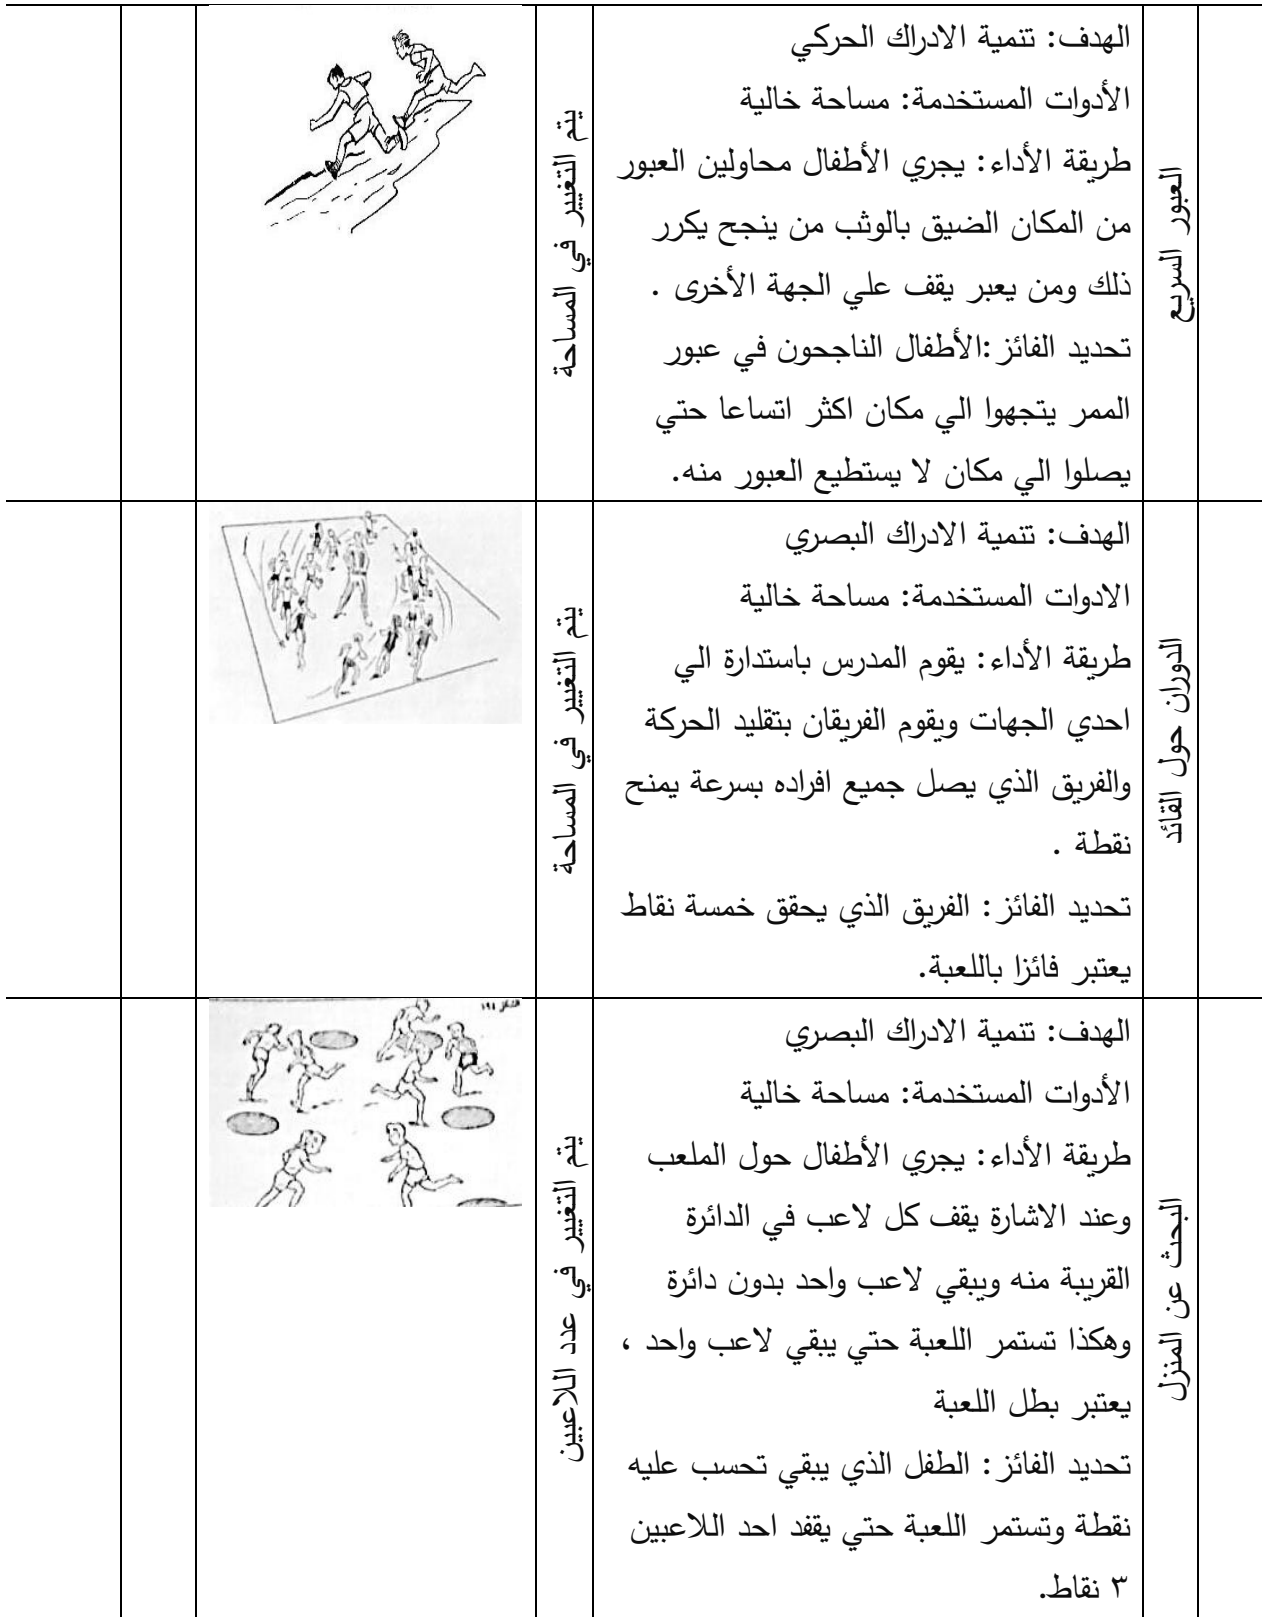 العبور السريع
الهدف: تنمية الادراك الحركي
الأدوات المستخدمة: مساحة خالية
طريقة الأداء: يجري الأطفال محاولين العبور
من المكان الضيق بالوثب من ينجح يكرر
ذلك ومن يعبر يقف علي الجهة الأخرى .
تحديد الفائز :الأطفال الناجحون في عبور
الممر يتجهوا الي مكان اكثر اتساعا حتي
يصلوا الي مكان لا يستطيع العبور منه.
يتم التغيير في المساحة
الدوران حول القائد
الهدف: تنمية الادراك البصري
الادوات المستخدمة: مساحة خالية
طريقة الأداء: يقوم المدرس باستدارة الي
احدي الجهات ويقوم الفريقان بتقليد الحركة
والفريق الذي يصل جميع افراده بسرعة يمنح
نقطة .
تحديد الفائز : الفريق الذي يحقق خمسة نقاط
يعتبر فائزا باللعبة.
يتم التغيير في المساحة
البحث عن المنزل
الهدف: تنمية الادراك البصري
الأدوات المستخدمة: مساحة خالية
طريقة الأداء: يجري الأطفال حول الملعب
وعند الاشارة يقف كل لاعب في الدائرة
القريبة منه ويبقي لاعب واحد بدون دائرة
وهكذا تستمر اللعبة حتي يبقي لاعب واحد ،
يعتبر بطل اللعبة
تحديد الفائز : الطفل الذي يبقي تحسب عليه
نقطة وتستمر اللعبة حتي يقفد احد اللاعبين
٣ نقاط.
يتم التغيير في عدد اللاعبين